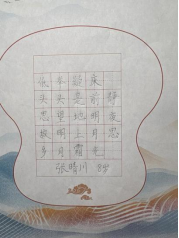 静夜思
床前明月光
疑是地上霜
举头望明月
低头思故乡
张晴川